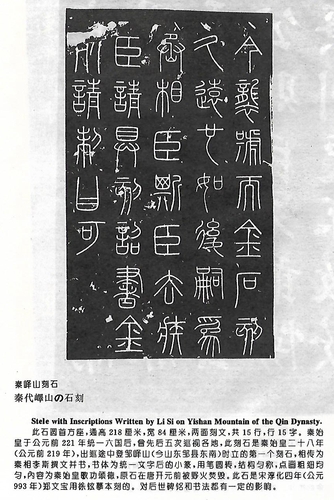 今襲號而金石刻
久遠也如後嗣為
丞相臣斯臣去疾
臣請具刻詔書金
死請制曰可
秦峄山刻石
秦代嶧山の石刻
Stele with Inscriptions Written by Li Si on Yishan Mountain of the Qin Dynasty.
此石圆首方座，通高218厘米，宽84厘米，两面刻文，共15行，行15字，秦始
皇于公元前221年统一六国后，曾先后五次巡视各地，此刻石是秦始皇二十八年
（公元前219年），出巡途中登邹峄山（今山东邹县东南）时立的第一个刻石，相传为
秦相李斯撰文并书，书体为统一文字后的小篆，用笔圆转，结构匀称，点画粗细均
匀，内容为秦始皇歌功颂德，原石在唐开元前被野火焚毁，此石是宋淳化四年（公元
993年）郑文宝用徐铉摹本刻的。对后世碑铭和书法都有一定的影响。